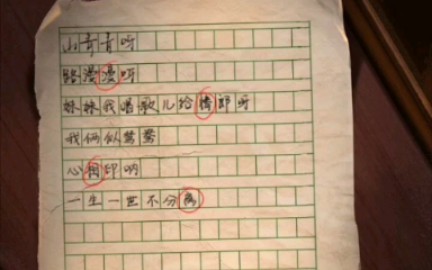 山青青呀
路漫漫呀
妹妹我唱歌儿给情郎呀
我俩似鸳鸯
心相印呐
一生一世不分离